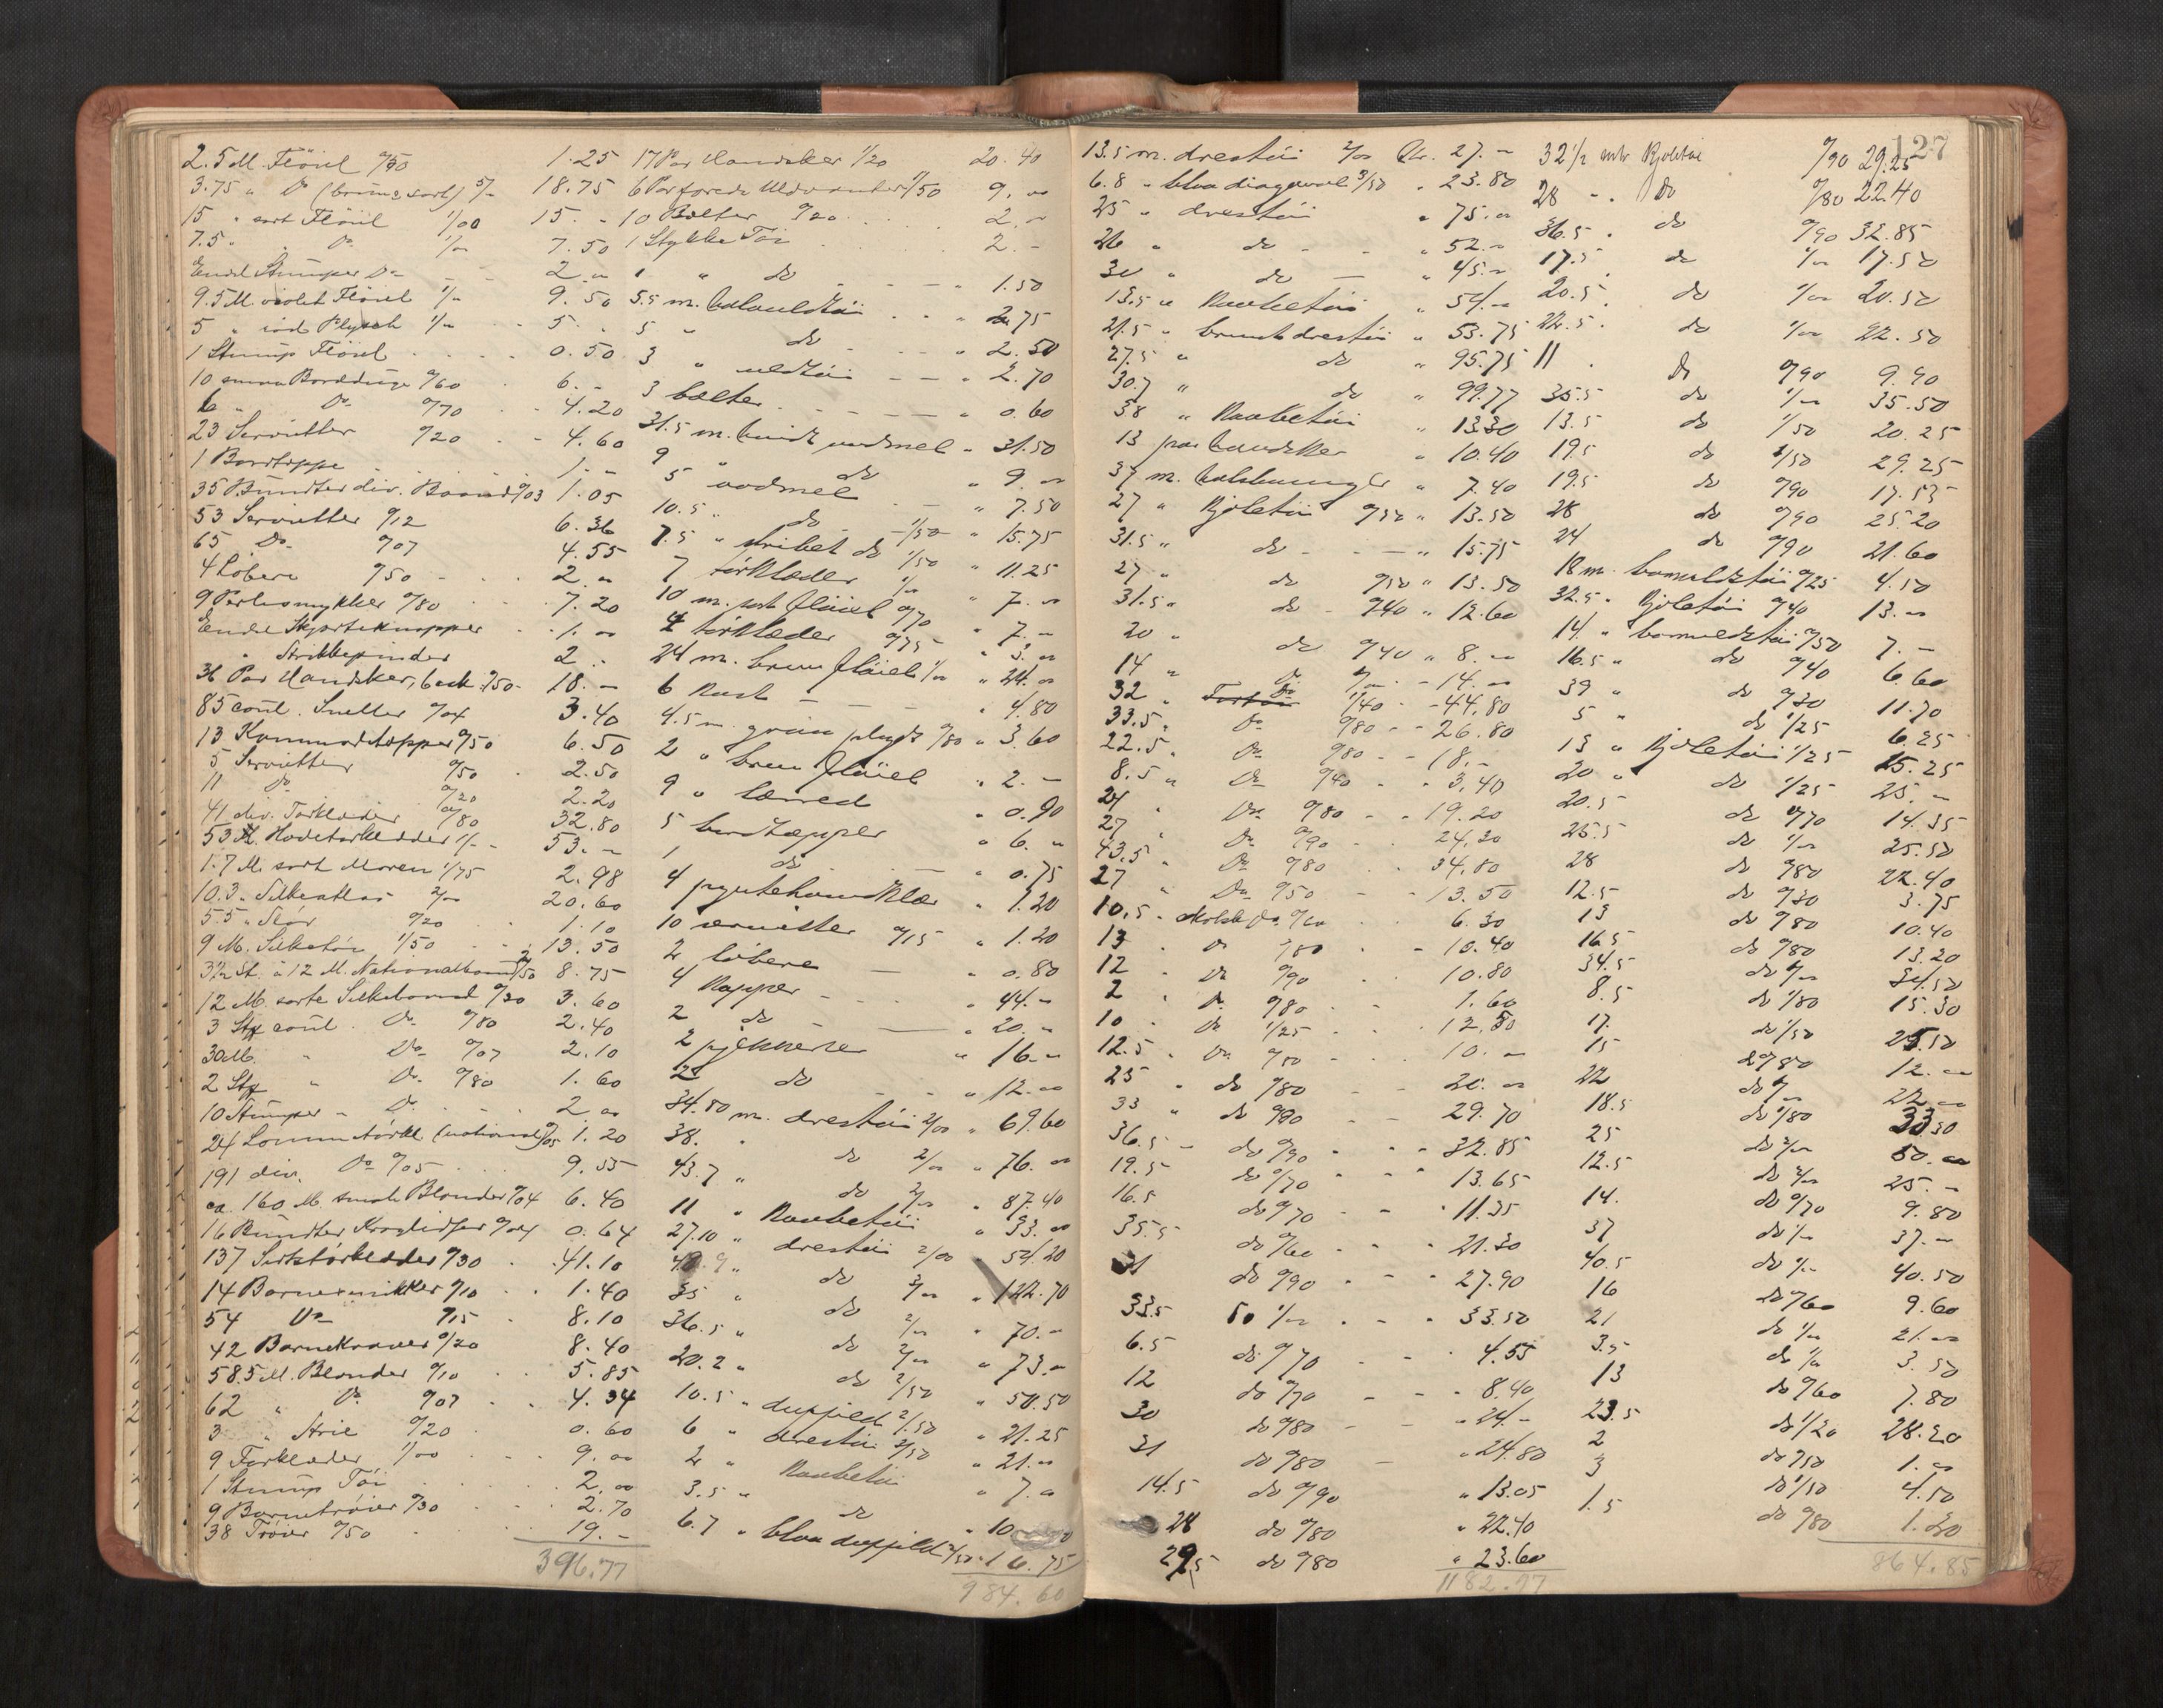 2.5 M. Flöiel 0/50 1.25
3.75 " Do (brun & sort) 5/- 18.75
15 " sort Flöiel 1/00 15. "
7.5 " Do 1/00 7.50
Endel Stumper Do 2. "
9.5 M. violet Flöiel 1/- 9.50
5 " rød Plysch 1/- 5. "
1 Stump Flöiel 0.50
10 smaa Bordduge 0/60 6. -
6 " Do 0/70 4.20
23 Servietter 0/20 4.60
1 Bordtæppe 1. -
35 Bundter div. Baand 0/03 1.05
53 Servietter 0/12 6.36
65 Do 0/07 4.55
4 Löbere 0/50 2. "
9 Perlesmykker 0/80 7.20
Endel Skjorteknapper 1. 00
" Strikkepinder 2. -
36 Par Handsker, 0/50 18. -
85 coul. Sneller 0/04 3.40
13 Kommodetæpper 0/50 6.50
5 Servietter 0/50 2.50
11 Do 0/20 2.20
41 div. Törklæder 0/80 32.80
53 St. Hovetörklæder 1/- 53. -
1.7 M. sort Moreen 1/75 2.98
10.3 " Silkeatlas 2/00 20.60
5.5 " Slör 0/20 1.10
9 M. Silketöi 1/50 13.50
3½ St. à 12 M. Nationalbaand 2/50 8.75
12 M. sorte Silkebaand 0/30 3.60
3 Stk coul. Do 0/80 2.40
30 M. " Do 0/07 2.10
2 Stk " Do 0/80 1.60
10 Stumper " Do 2. 00
24 Lommetörkl. (national) 0/05 1.20
191 div. Do 0/05 9.55
ca. 160 M. smale Blonder 0/04 6.40
16 Bundter 0/04 0.64
137 Sirtstörklæder 0/30 41.10
14 Barnesmikker 0/10 1.40
54 Do 0/15 8.10
42 Barnekraver 0/20 8.40
58.5 M. Blonder 0/10 5.85
62 " Do 0/07 4.34
3 " Strie 0/20 0.60
9 Forklæder 1/00 9. 00
1 Stump Töi 2. 00
9 Barnetröier 0/30 2.70
38 Tröier 0/50 19. -
396.77
17 Par Handsker 1/20 20.40
6 Par forede Uldvanter 1/50 9. 00
10 Belter 0/20 2. 00
1 Stykke Töi 2. -
1 " do 1.50
5.5 m. halvuldtöi 2.75
5 " do 2.50
3 " uldtöi 2.70
3 belter 0.60
31.5 m. hvidt vadmel 31.50
9 " do 9. 00
5 " vadmel 7.50
10.5 " do 1/50 15.75
7.5 " stribet do 1/50 11.25
7 törklæder 1/00 7. 00
10 m. sort flöiel 0/70 7. -
4 törklæder 0/75 3. 00
24 m. brun flöiel 1/00 24. 00
6 4.80
4.5 m. grön plysch 0/80 3.60
2 " brun flöiel 2. -
9 " lærred 0.90
5 bordtæpper 6. "
1 do 0.75
4 pyntehaandklær 1.20
10 servietter 0/15 1.20
2 löbere 0.80
4 Kapper 44. -
2 do 20. -
2 pjekkerter 16. -
2 do 12. 00
34.80 m. drestöi 2/00 69.60
38. " do 2/00 76. 00
43.7 " do 2/00 87.40
11 " Kaabetöi 33. 00
27.10 " drestöi 2/00 54.20
40.9 " do 3/00 122.70
35 " do 2/00 70. -
36.5 " do 2/00 73. 00
20.2 " do 2/50 50.50
10.5 " duffield 2/50 21.25
6 " drestöi 3/50 21. 00
2 " Kaabetöi 7. 00
3.5 " do 10
6.7 " blaa duffield 2/50 16.75
984.60
13.5 m. drestöi 2/00 Kr. 27. -
6.8 " blaa diagonal 3/50 23.80
25 " drestöi 75. 00
26 " do 52. 00
30 " do 45. 00
13.5 " Kaabetöi 54. 00
21.5 " brunt drestöi 53.75
27.5 " do 95.75
30.7 " do 99.77
38 " Kaabetöi 13.30
13 par handsker 10.40
37 m. 7.40
27 " Kjoletöi 0/50 13.50
31.5 " do 15.75
27 " do 0/50 13.50
31.5 " do 0/40 12.60
20 " do 0/40 8. 00
14 " do 1/00 14. 00
32 " Do 1/40 44.80
33.5 " Do 0/80 26.80
22.5 " Do 0/80 18. -
8.5 " Do 0/40 3.40
24 " Do 0/80 19.20
27 " Do 0/90 24.30
43.5 " Do 0/80 34.80
27 " Do 0/50 13.50
10.5 " skotsk Do 0/60 6.30
13 " Do 0/80 10.40
12 " Do 0/90 10.80
2 " Do 0/80 1.60
10 " Do 1/25 12.50
12.5 " Do 0/80 10. 00
25 " do 0/80 20. 00
33 " do 0/90 29.70
36.5 " do 0/90 32.85
19.5 do 0/70 13.65
16.5 do 0/70 11.35
35.5 do 0/60 21.30
31 do 0/90 27.90
33.5 do 1/00 33.50
6.5 do 0/70 4.55
12 do 0/70 8.40
30 do 0/80 24. -
31 do 0/80 24.80
14.5 do 0/90 13.05
28 do 0/80 22.40
29.5 do 0/80 23.60
1182.77
127
32 1/2 mtr Kjoletöi 0/90 29.25
28 " Do 0/80 22.40
36.5 " do 0/90 32.85
17.5 " do 1/00 17.50
20.5 " do 1/00 20.50
22.5 " do 1/00 22.50
11 " do 0/90 9.90
35.5 do 1/00 35.50
13.5 do 1/50 20.25
19.5 do 1/50 29.25
19.5 do 0/90 17.55
28 do 0/90 25.20
24 do 0/90 21.60
18 m. bomuldstöi 0/25 4.50
32.5 " Kjoletöi 0/40 13. 00
14 " bomuldstöi 0/50 7. -
16.5 " do 0/40 6.60
39 " do 0/30 11.70
5 " do 1/25 6.25
13 " Kjoletöi 1/25 15.25
20 " do 1/25 25. -
20.5 do 0/70 14.35
25.5 do 1/00 25.50
28 do 0/80 22.40
12.5 do 0/30 3.75
13 do 0/80 10.40
16.5 do 0/80 13.20
34.5 do 1/00 34.50
8.5 do 1/80 15.30
17. do 1/50 25.50
15 0/80 12. 00
22 do 1/00 22. 00
18.5 do 1/80 33.30
25 do 2/00 50. 00
12.5 do 2/00 25. -
14. do 0/70 9.80
37 do 1/00 37. -
40.5 do 1/00 40.50
16 do 0/60 9.60
21 do 1/00 21. 00
3.5 do 1/00 3.50
13 do 0/60 7.80
23.5 do 1/20 28.20
2 do 0/50 1. 00
3 do 1/50 4.50
1.5 do 0/80 1.20
864.85